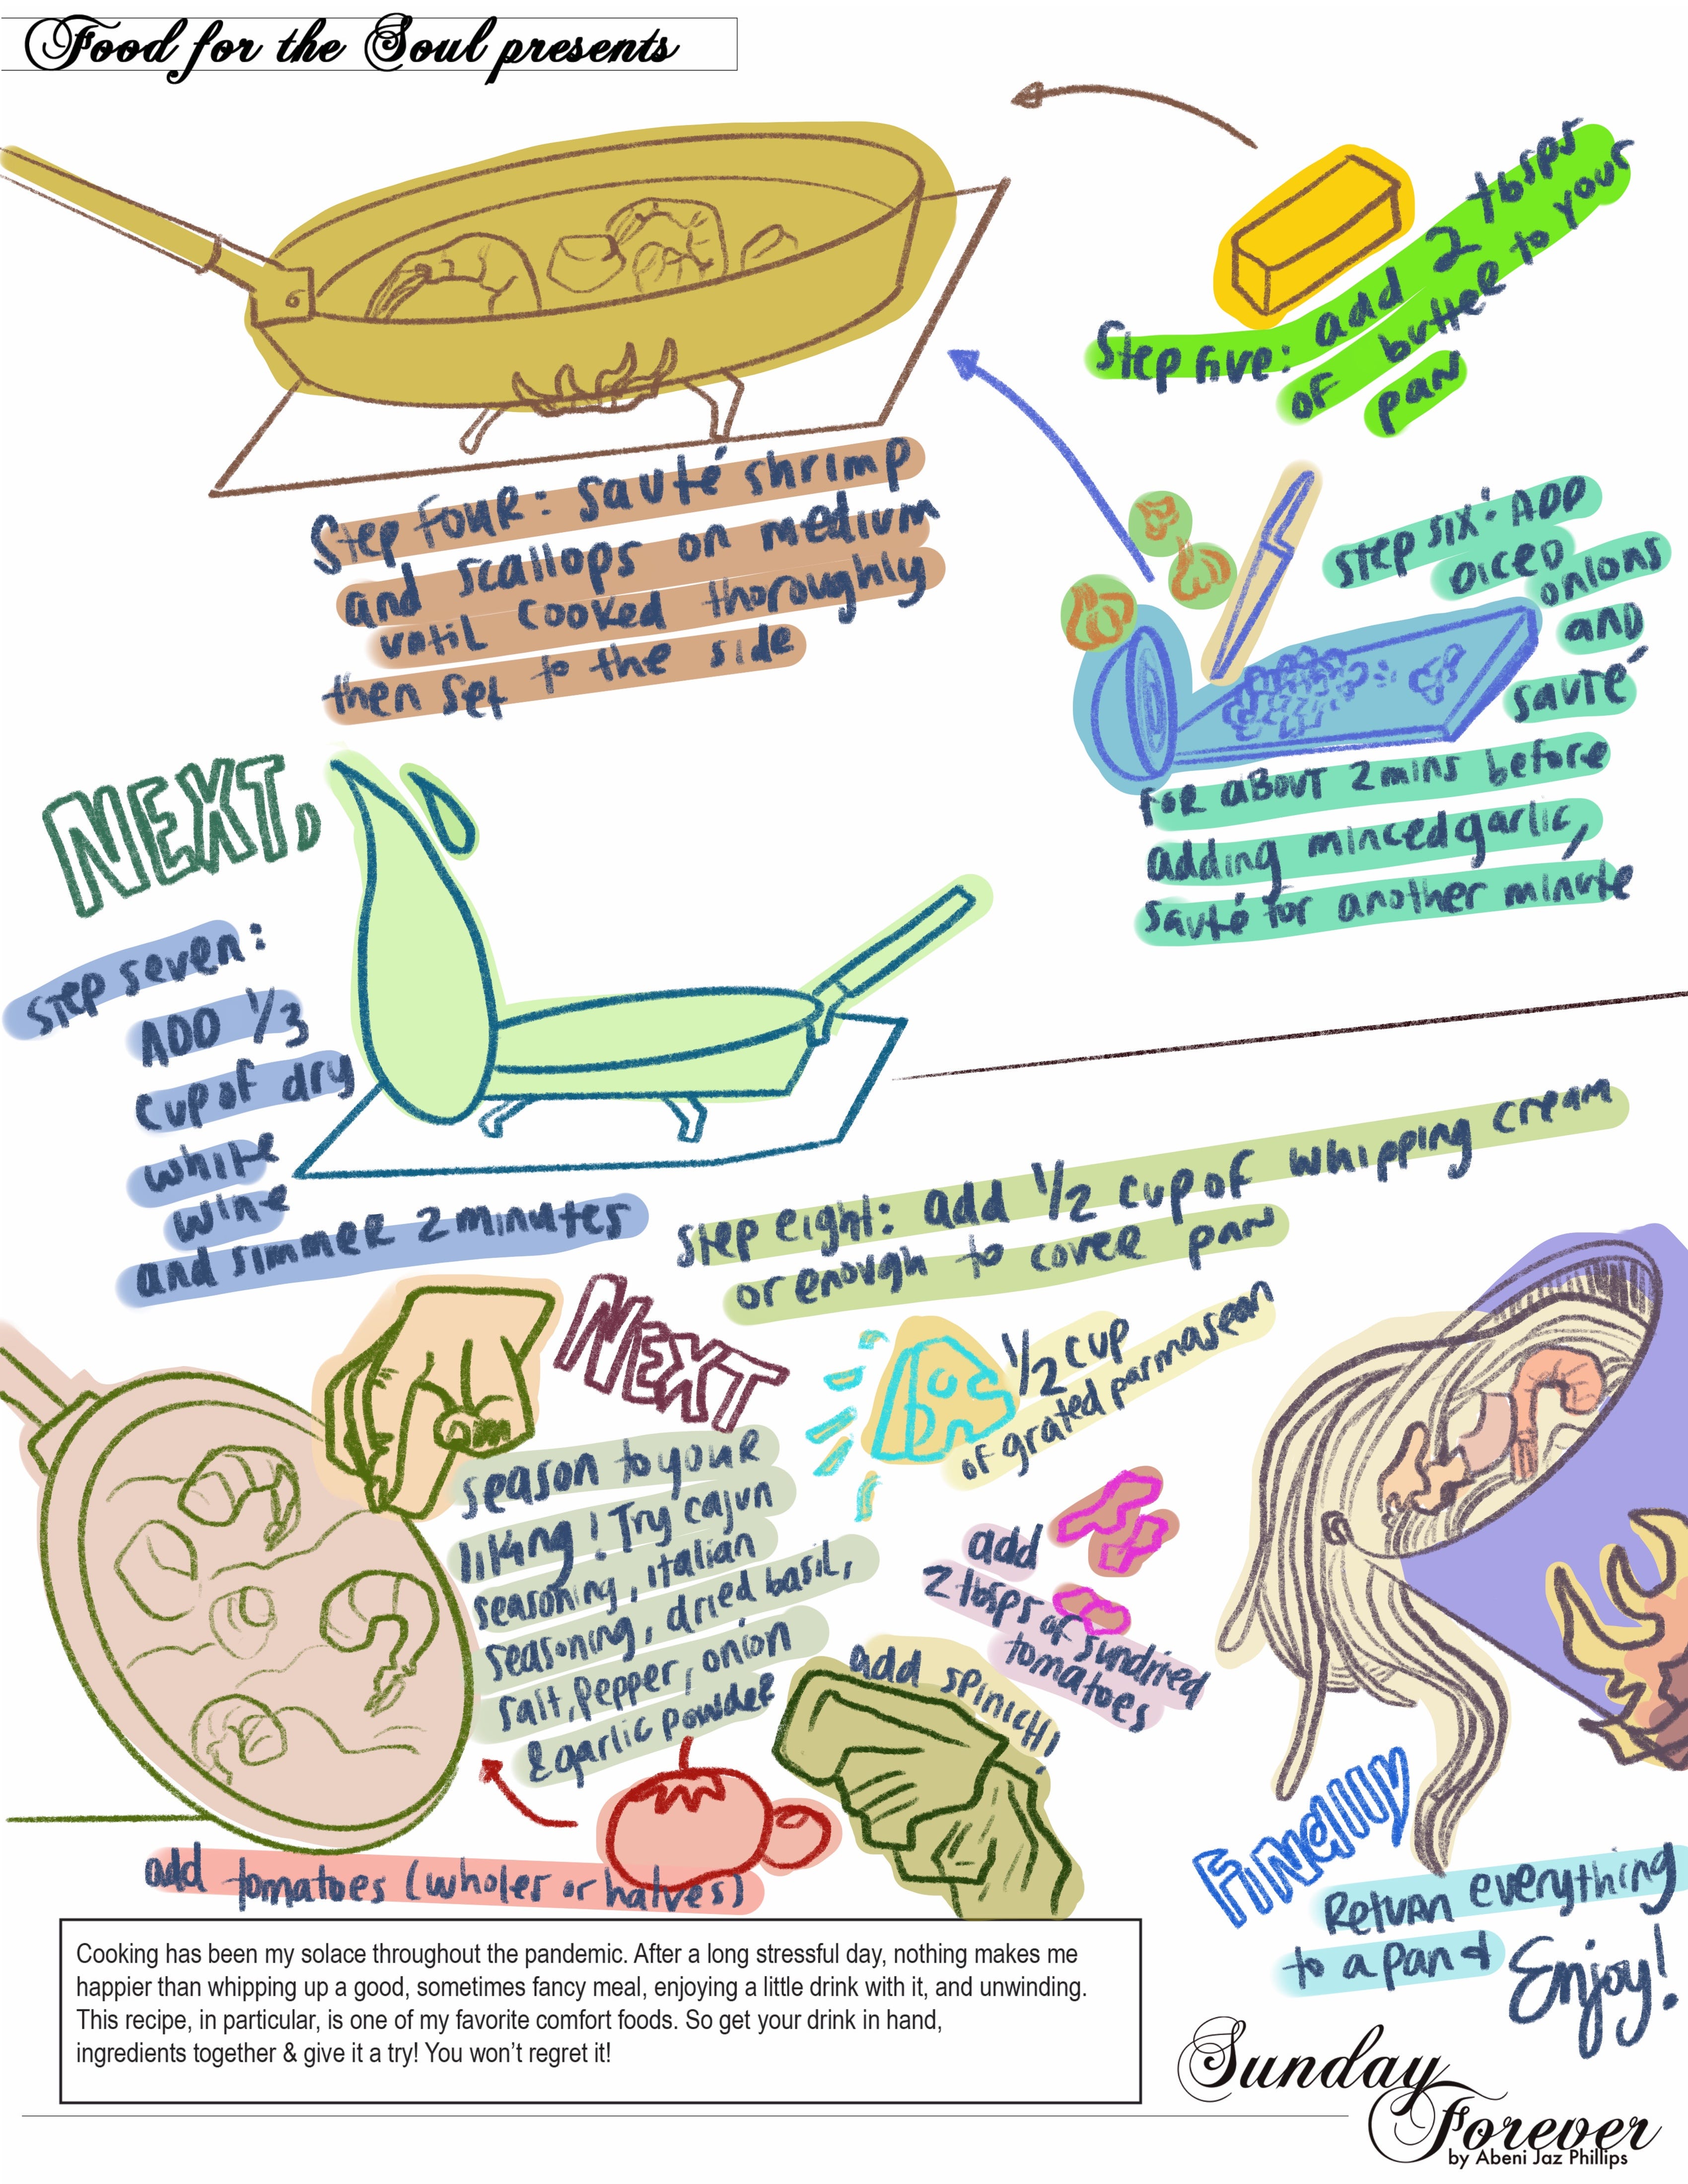 Food for the Soul presents
Step five: add 2 tbsps
of butter to your
pan
Step four: sauté shrimp
and scallops on medium
until cooked thoroughly
then set to the side
step six: ADD
diced
onions
and
sauté
for about 2 mins before
adding minced garlic,
sauté for another minute
NEXT,
step seven:
ADD 1/3
cup of dry
white
wine
and simmer 2 minutes
step eight: add 1/2 cup of whipping cream
or enough to cover pan
NEXT
1/2 cup
of grated parmasean
season to your
liking! Try cajun
seasoning, italian
seasoning, dried basil,
salt, pepper, onion
& garlic powder
add
2 tbsps of sundried
tomatoes
add spinich!
add tomatoes (wholes or halves)
Finally
Return everything
to a pan &
Enjoy!
Cooking has been my solace throughout the pandemic. After a long stressful day, nothing makes me
happier than whipping up a good, sometimes fancy meal, enjoying a little drink with it, and unwinding.
This recipe, in particular, is one of my favorite comfort foods. So get your drink in hand,
ingredients together & give it a try! You won't regret it!
Sunday
Forever
by Abeni Jaz Phillips